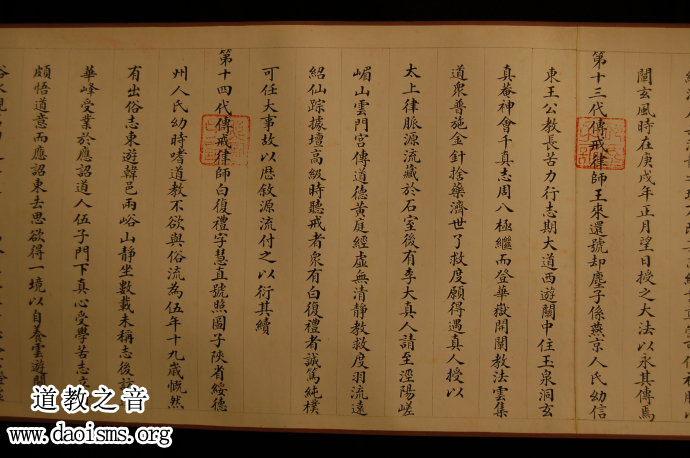 閫玄風時在庚戌年正月望日授之大法以永其傳焉
第十三代傳戒律師王來還號却塵子係燕京人氏幼信
東王公教長苦力行志期大道西遊關中住玉泉洞玄
真菴神會千真志周八極繼而登華獄開闡教法雲集
道眾普施金針捨藥濟世了救度願得遇真人授以
太上律脈源流藏於石室後有李大真人請至涇陽嵯
嵋山雲門宮傳道德黃庭經虛無清靜教救度羽流遠
紹仙踪據壇高級時聽戒者衆有白復禮者誠篤純樸
可任大事故以歷敘源流付之以衍其續
第十四代傳戒律師白復禮字慧直號照圖子陝省綏德
州人氏幼時嗜道教不欲與俗流為伍年十九歲慨然
有出俗志東遊韓邑兩峪山靜坐數載未稱志後
華峰受業於應詔道人伍子門下真心受學苦志
頗悟道意而應詔東去思欲得一境以自養雲遊
道教之音
www.daoisms.org